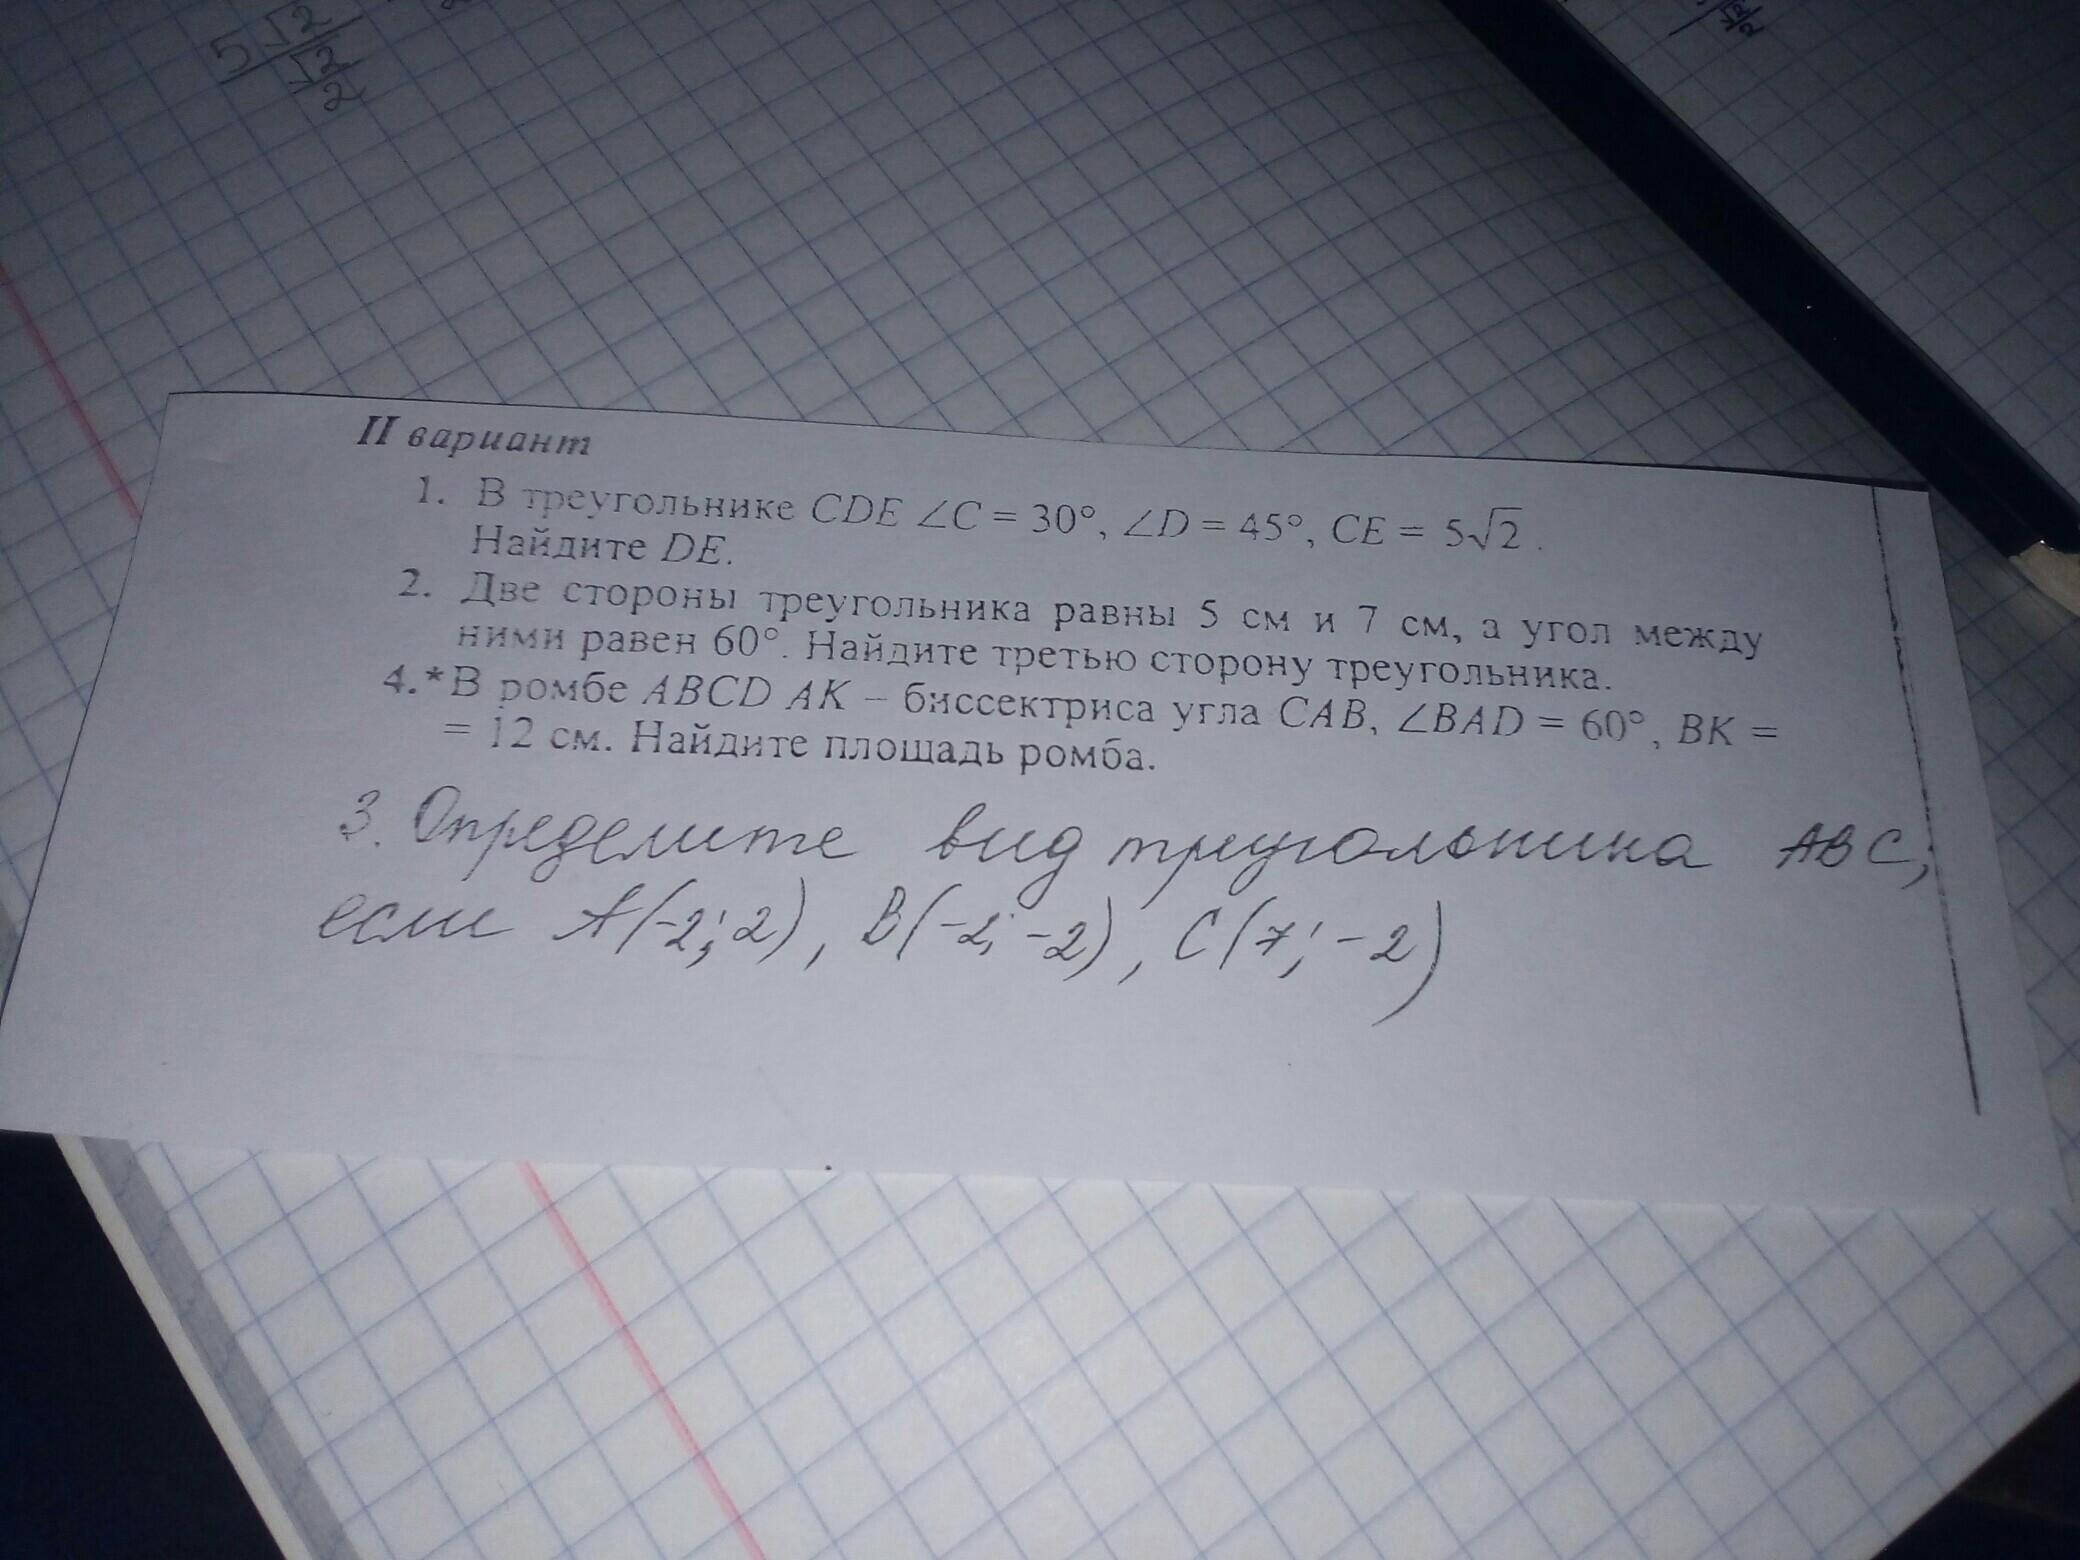 II вариант
1. В треугольнике CDE ∠C = 30°, ∠D = 45°, CE = 5√2.
Найдите DE.
2. Две стороны треугольника равны 5 см и 7 см, а угол между
ними равен 60°. Найдите третью сторону треугольника.
4.* В ромбе ABCD AK – биссектриса угла CAB, ∠BAD = 60°, BK =
= 12 см. Найдите площадь ромба.
3. Определите вид треугольника ABC,
если A(-2; 2), B(-2; -2), C(7; -2)